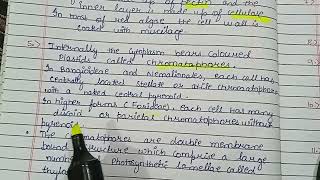 up of pectin and the
inner layer is made up of cellulose
In most of red algae the cell wall is
coated with mucilage
5) Internally the cytoplasm bears coloured
Plastid called chromatophores.
In Bangioideae and Nemalionales, each cell has
centrally located stellate or axile chromatophore
with a naked central pyrenoid.
In higher forms (Florideae), each cell has many
discoid or parietal chromatophores without
pyrenoid
The chromatophores are double membrane
bound structure which comprise a large
number Photosynthetic lamellae called
thyla